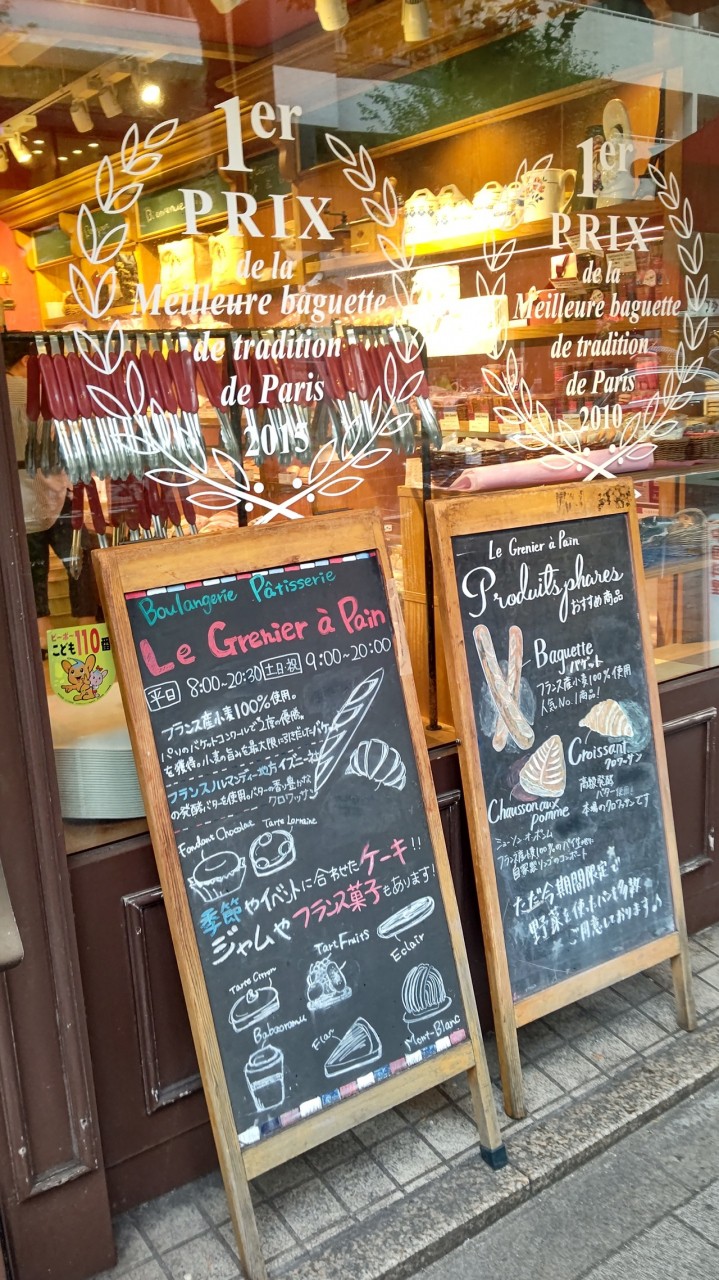 1er
PRIX
de la
Meilleure baguette
de tradition
de Paris
2015
1er
PRIX
de la
Meilleure baguette
de tradition
de Paris
2010
Boulangerie Pâtisserie
Le Grenier à Pain
平日 8:00~20:30 土日・祝 9:00~20:00
フランス産小麦100%使用。
パリのバゲットコンクールで2度の優勝
を獲得。小麦の旨みを最大限に引きだしたバゲット
フランスノルマンディー地方イズニー社
の発酵バターを使用。バターの香り豊かな
クロワッサン
Fondant Chocolat
Tarte Lorraine
季節やイベントに合わせたケーキ!!
ジャムやフランス菓子もあります!
Tarte Citron
Tart Fruits
Eclair
Flan
Mont-Blanc
Le Grenier à Pain
Produits phares
おすすめ商品
Baguette
バゲット
フランス産小麦100%使用
人気No.1商品!
Croissant
クロワッサン
高級発酵
バター使用!
本場のクロワッサンです
Chausson aux
pomme
ショーソン・オ・ポム
フランス産
自家製リンゴのコンポート
ただ今期間限定で
野菜を使ったパンも多数
ご用意しております♪
ピーポ110番
こども